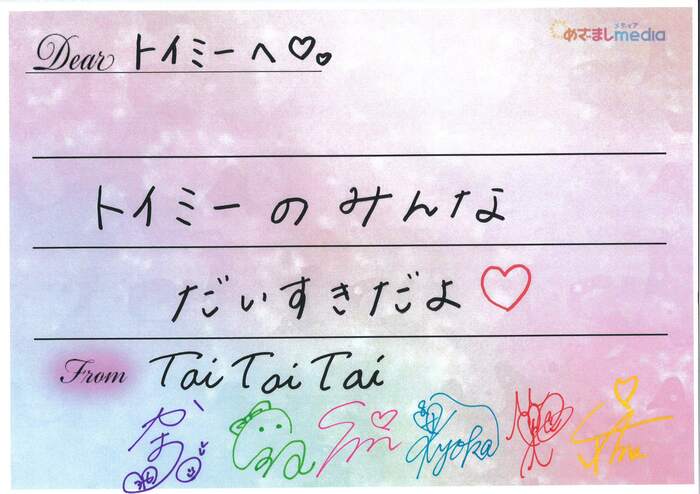 Dear トイミーへ♡♡
メディア
めざましmedia
トイミーのみんな
だいすきだよ♡
From Tai Tai Tai
Kyoka